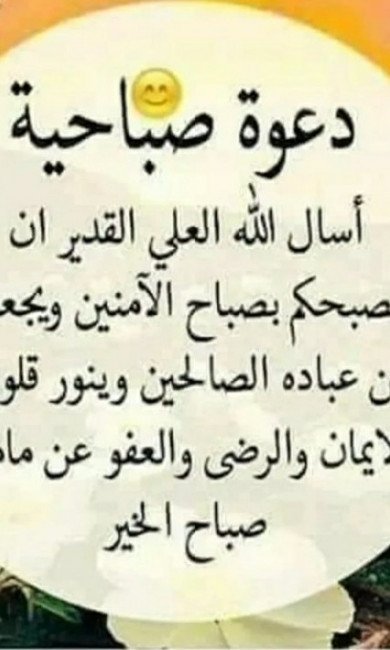 دعوة صباحية
أسال الله العلي القدير ان
بصباح الآمنين
عباده الصالحين وينور
والرضى والعفو عن
صباح الخير